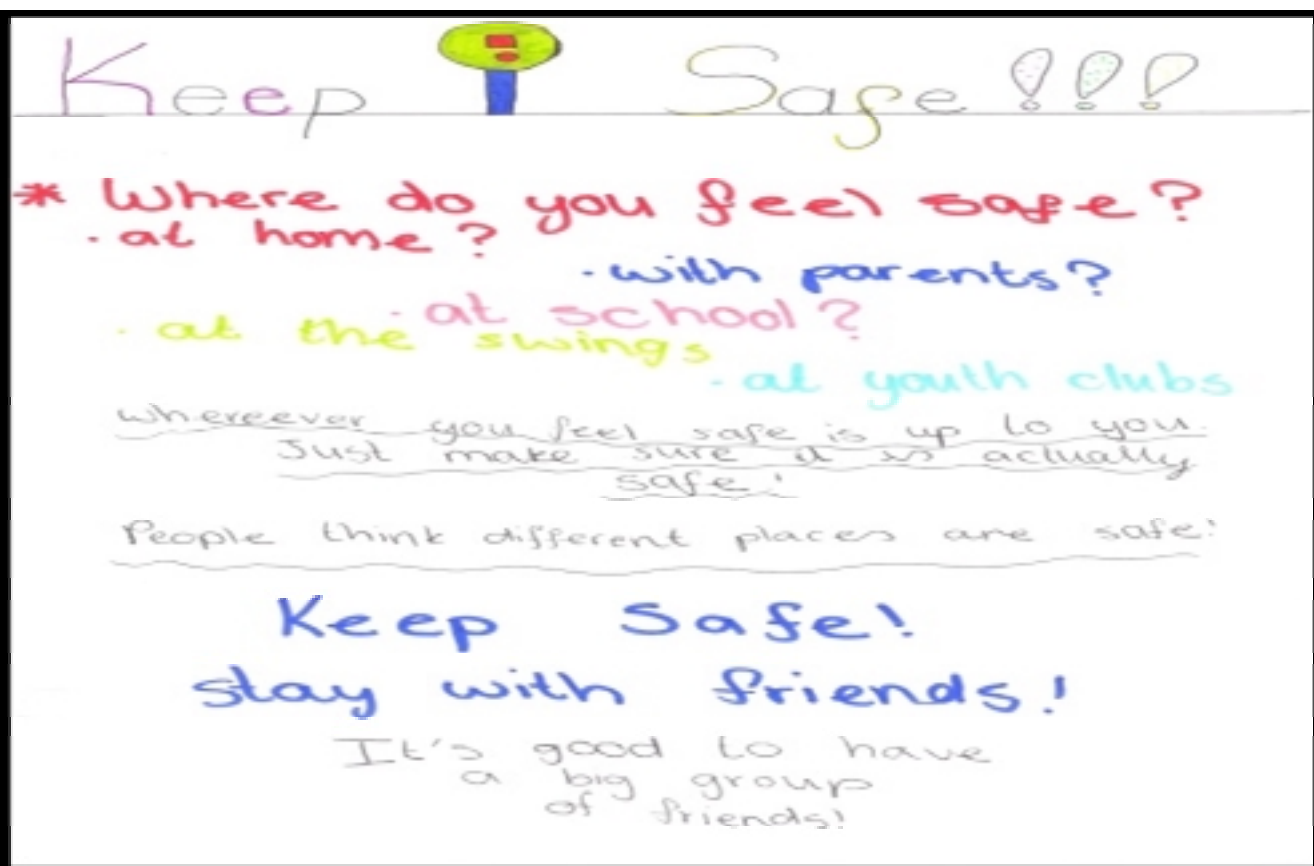 Keep ! Safe !!!
* Where do you feel safe?
· at home?
· with parents?
· at school?
· at the swings
· at youth clubs
Whereever you feel safe is up to you.
Just make sure it is actually
safe!
People think different places are safe!
Keep Safe!
stay with friends!
It's good to have
a big group
of friends!